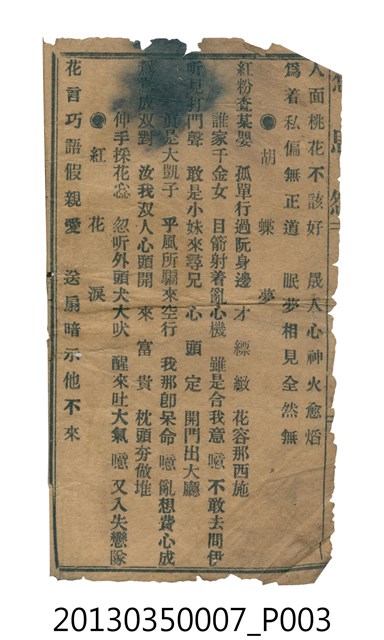 人面桃花不該好　晟人心神火愈焰
爲着私偏無正道　眠夢相見全然無
●胡蝶夢
紅粉查某嬰　孤單行過阮身邊　才縹緻　花容那西施
誰家千金女　目箭射着亂心機　雖是合我意　噫　不敢去問伊
听見打門聲　敢是小妹來尋兄　心頭定　開門出大廳
是大凱子　乎風所騙來空行　我那卽呆命　噫　亂想費心成
成双對　汝我双人心頭開　來富貴　枕頭夯做堆
伸手採花蕊　忽听外頭犬大吠　醒來吐大氣　噫　又入失戀隊
●紅花淚
花言巧語假親愛　送扇暗示他不來
20130350007_P003